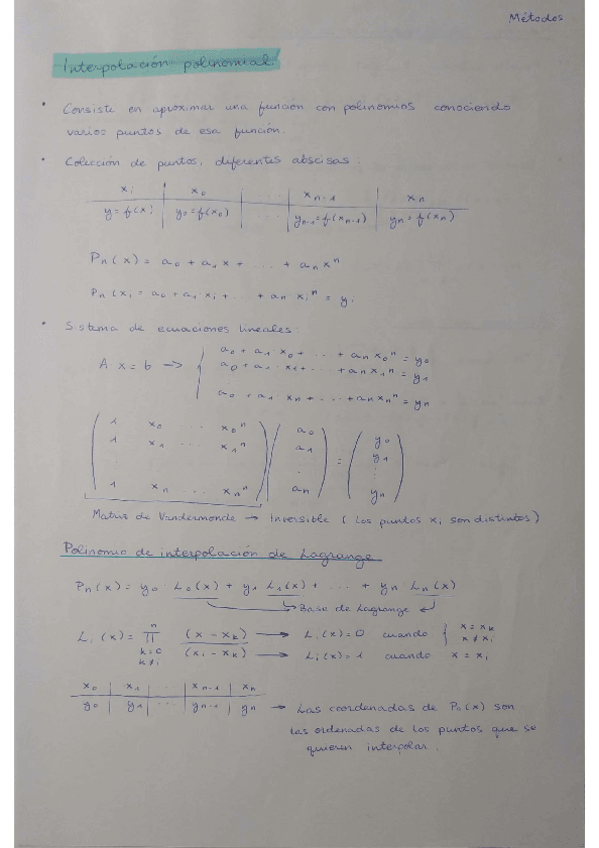 Métodos
Interpolación polinomial:
• Consiste en aproximar una función con polinomios conociendo
varios puntos de esa función.
• Colección de puntos, diferentes abscisas:
xi | x0 | ... | xn-1 | xn
y=f(xi | y0=f(x0) | ... | yn-1=f(xn-1) | yn=f(xn)
Pn(x) = a0 + a1 x + ... + an x^n
Pn(xi = a0 + a1 xi + ... + an xi^n = yi
• Sistema de ecuaciones lineales:
a0 + a1 · x0 + ... + an x0^n = y0
A x = b → { a0 + a1 · x1 + ... + an x1^n = y1
a0 + a1 · xn + ... + an xn^n = yn
( 1 x0 ... x0^n ) ( a0 ) = ( y0 )
( 1 x1 ... x1^n ) ( a1 ) ( y1 )
( 1 xn ... xn^n ) ( an ) ( yn )
Matriz de Vandermonde → Inversible (Los puntos xi son distintos)
Polinomio de interpolación de Lagrange
Pn(x) = y0 · L0(x) + y1 L1(x) + ... + yn Ln(x)
Base de Lagrange
Li(x) = n ∏ k=0 k≠i (x - xk) / (xi - xk) → Li(x)=0 cuando { x = xk x ≠ xi
→ Li(x)=1 cuando x = xi
x0 | x1 | ... | xn-1 | xn
y0 | y1 | ... | yn-1 | yn → Las coordenadas de Pn(x) son
las ordenadas de los puntos que se
quieren interpolar.